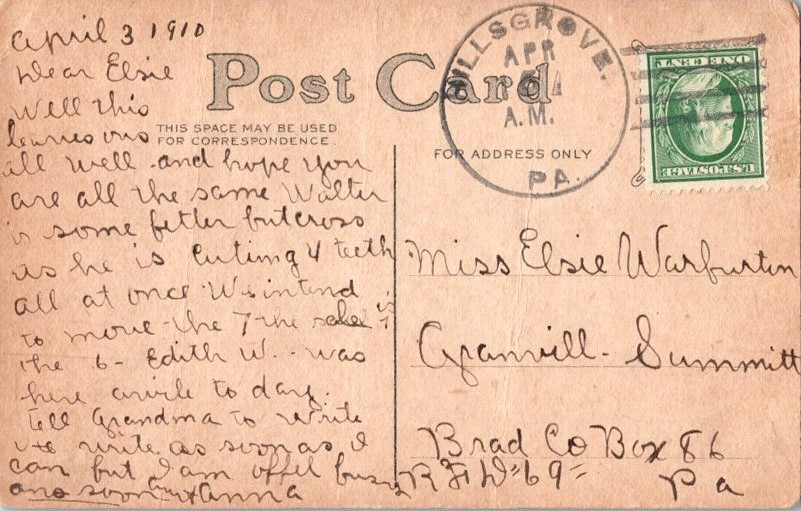 april 3 1910
Dear Elsie
Well this
leaves ous
all well and hope you
are all the same Walter
is some fetter but cross
as he is cuting 4 teeth
all at once We intend
to move the 7 the
the 6 - Edith W. - was
here awile to day.
Tell Grandma to write
write as soon as I
can but I am offel busy
ans soon aunt Anna
Post Card
THIS SPACE MAY BE USED
FOR CORRESPONDENCE
FOR ADDRESS ONLY
HILLSGROVE.
APR
A.M.
PA.
ONE CENT
U.S. POSTAGE
Miss Elsie Warburton
Granvill - Summitt
Brad Co Box 86
R F D 69
Pa